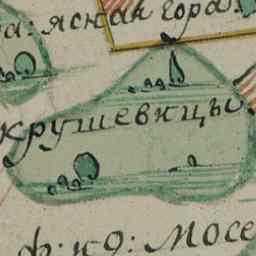 а: ясная гора:
крушевицы
ф: к д: Мосе